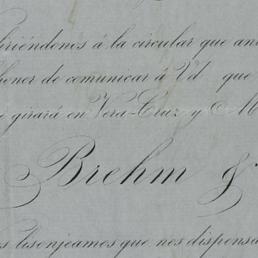 firiéndonos á la circular que an
honor de comunicar á Vd que
girará en Vera-Cruz y M
Brehm &
lisonjeamos que nos dispensa